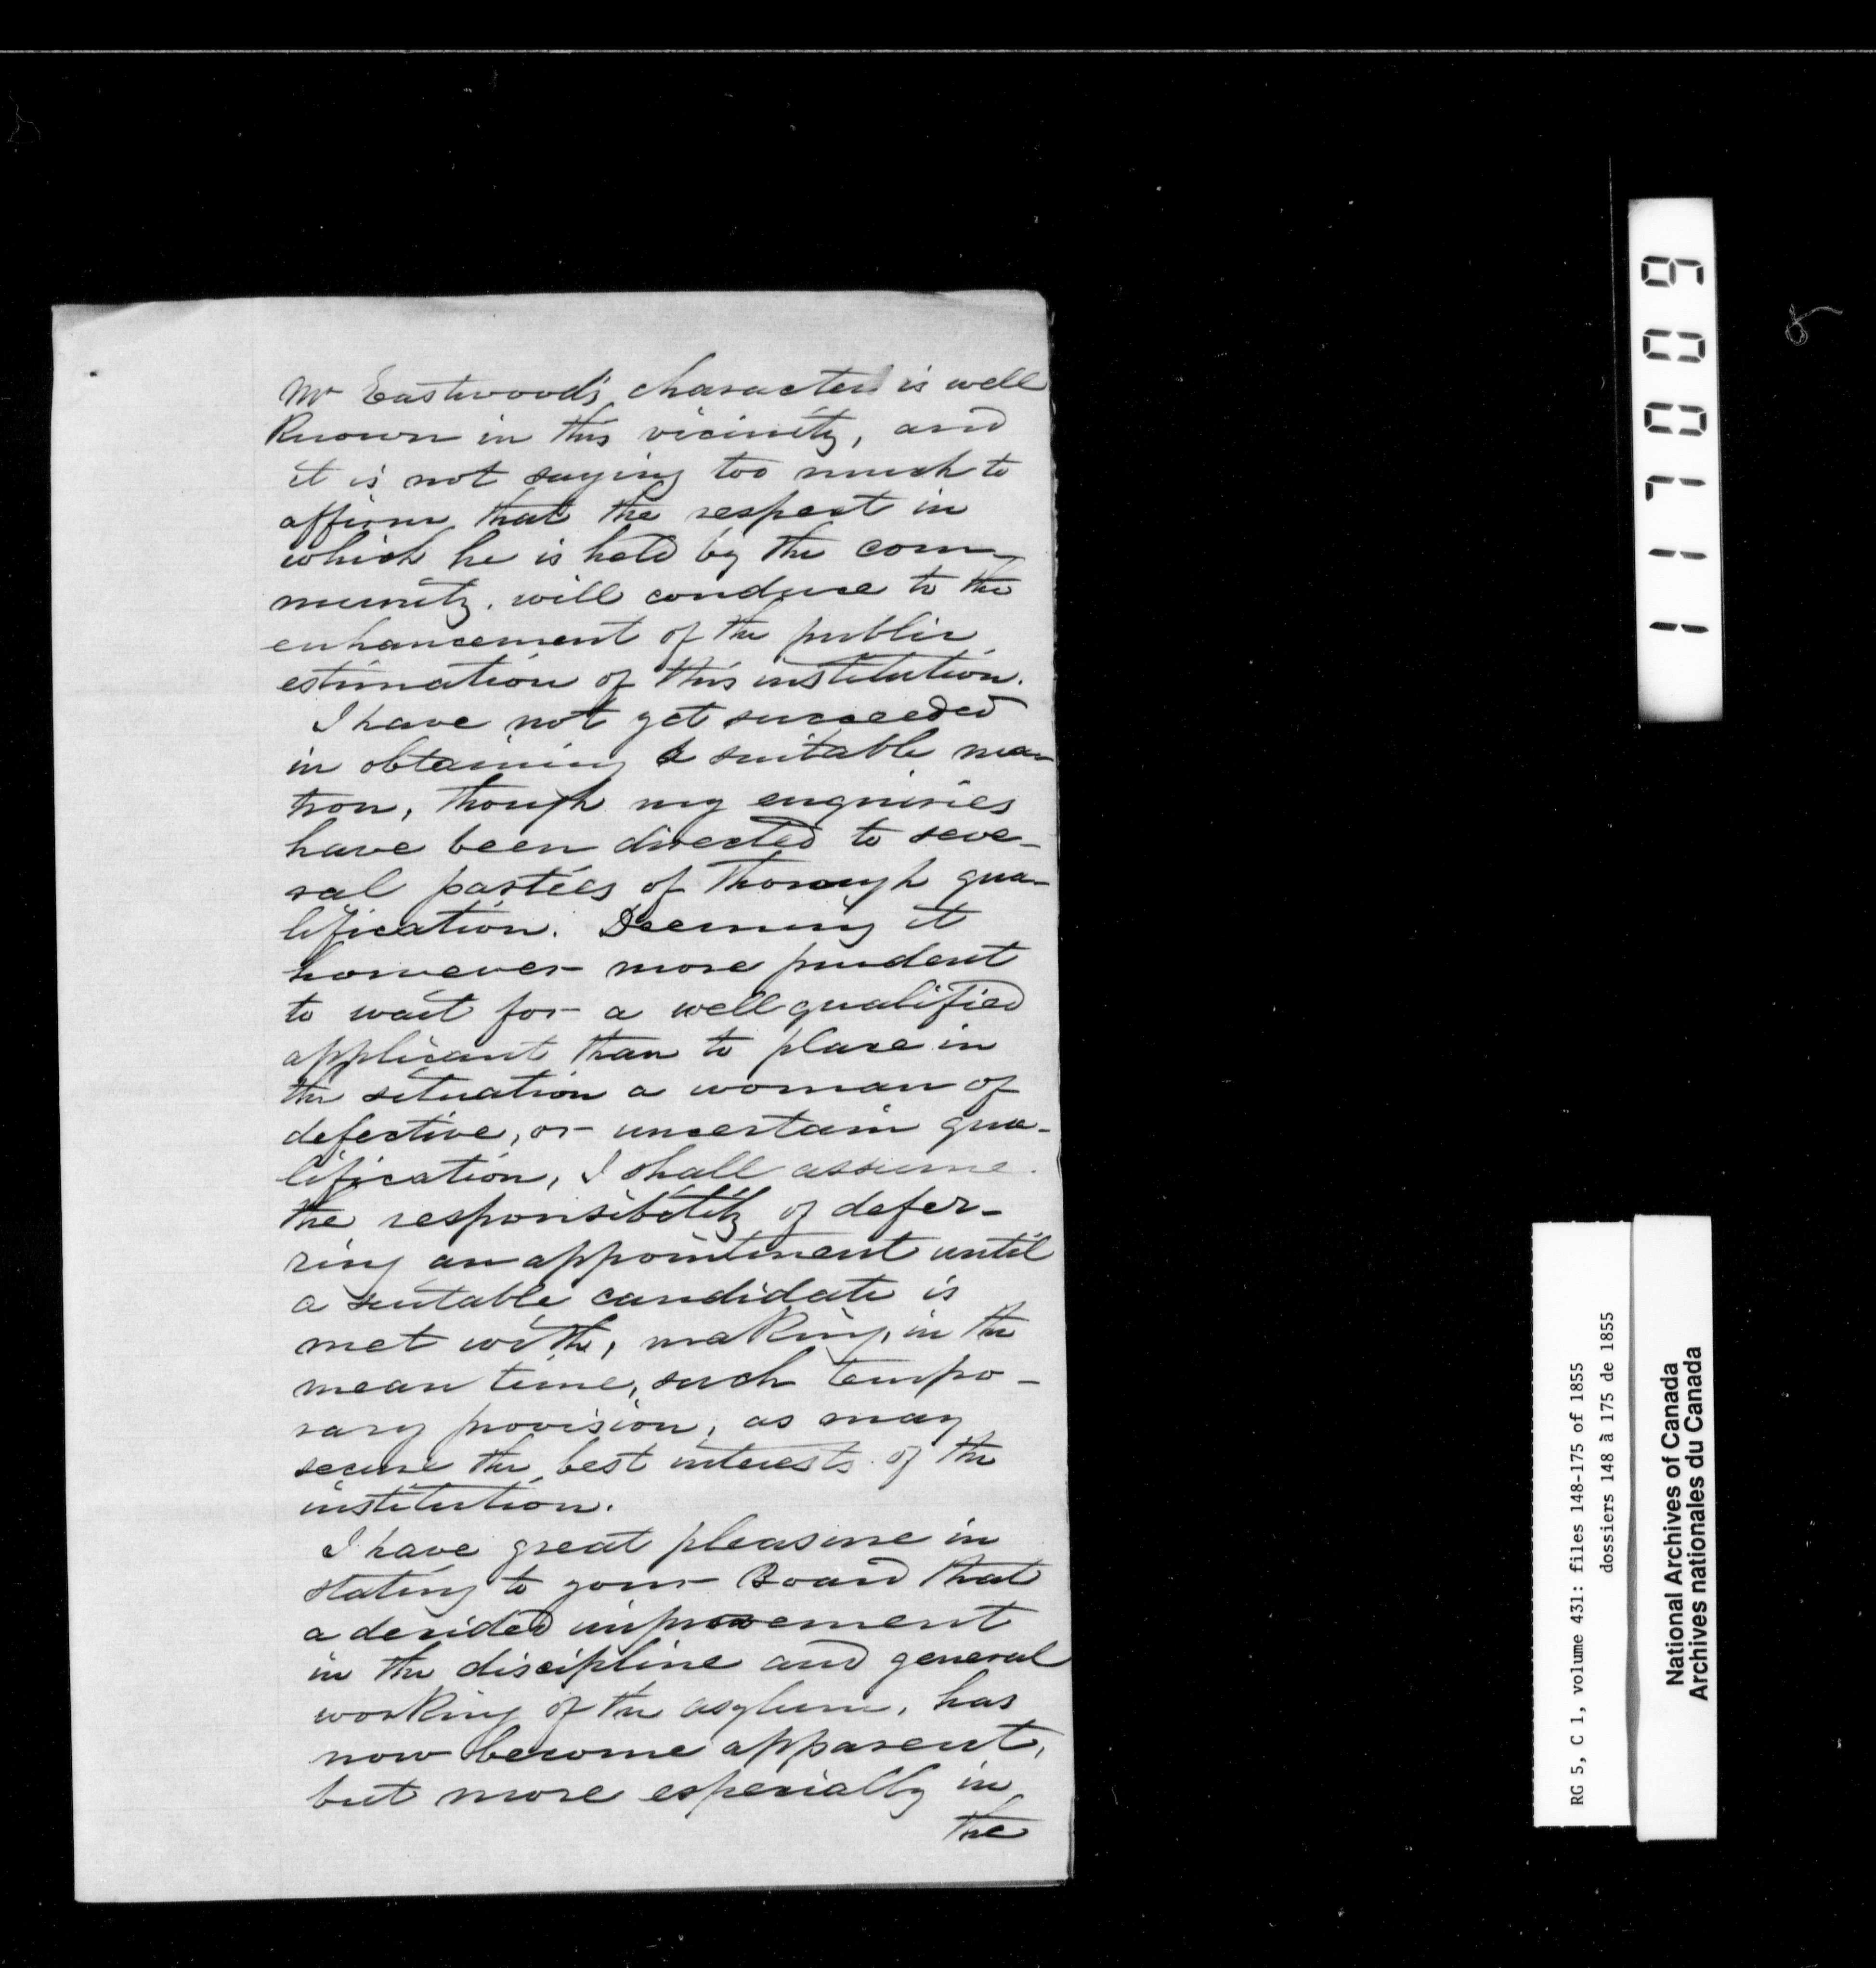 Mr Eastwood's character is well
known in this vicinity, and
it is not saying too much to
affirm that the respect in
which he is held by the com-
munity, will conduce to the
enhancement of the public
estimation of this institution.
I have not yet succeeded
in obtaining a suitable ma-
tron, though my enquiries
have been directed to seve-
ral parties of thorough qua-
lification. Deeming it
however more prudent
to wait for a well qualified
applicant than to place in
the situation a woman of
defective, or uncertain qua-
lification, I shall assume
the responsibility of defer-
ring an appointment until
a suitable candidate is
met with, making, in the
mean time, such tempo-
rary provision, as may
secure the best interests of the
institution.
I have great pleasure in
stating to your Board that
a decided improvement
in the discipline and general
working of the asylum, has
now become apparent,
but more especially in
the
117009
RG 5, C 1, volume 431: files 148-175 of 1855
dossiers 148 à 175 de 1855
National Archives of Canada
Archives nationales du Canada